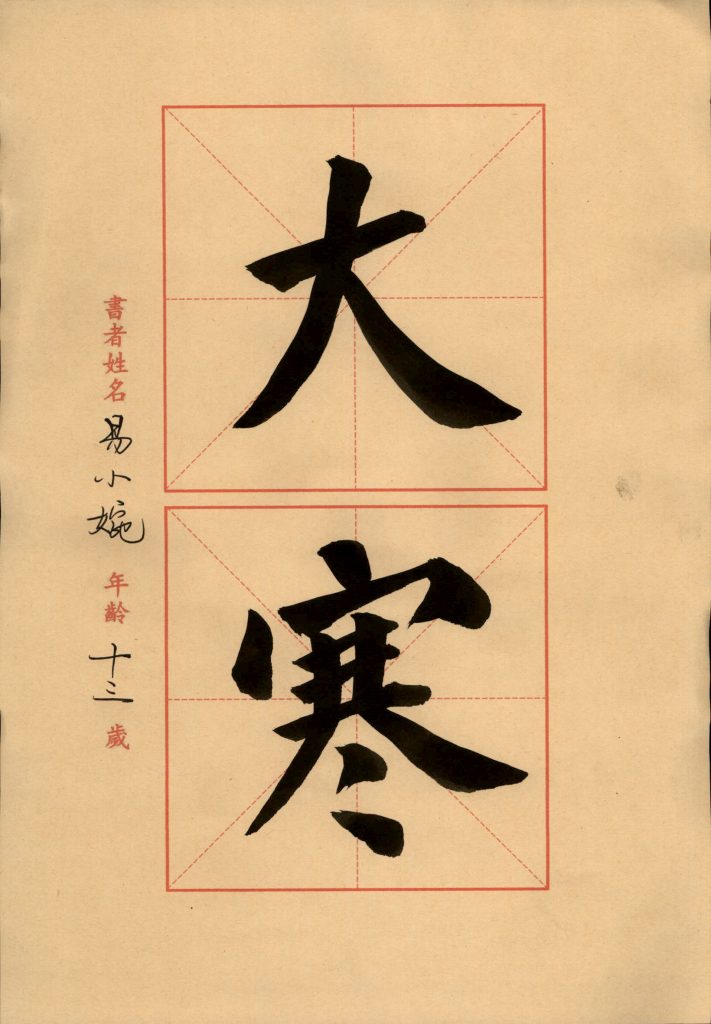 大寒
書者姓名 易小婉 年齡 十三 歲